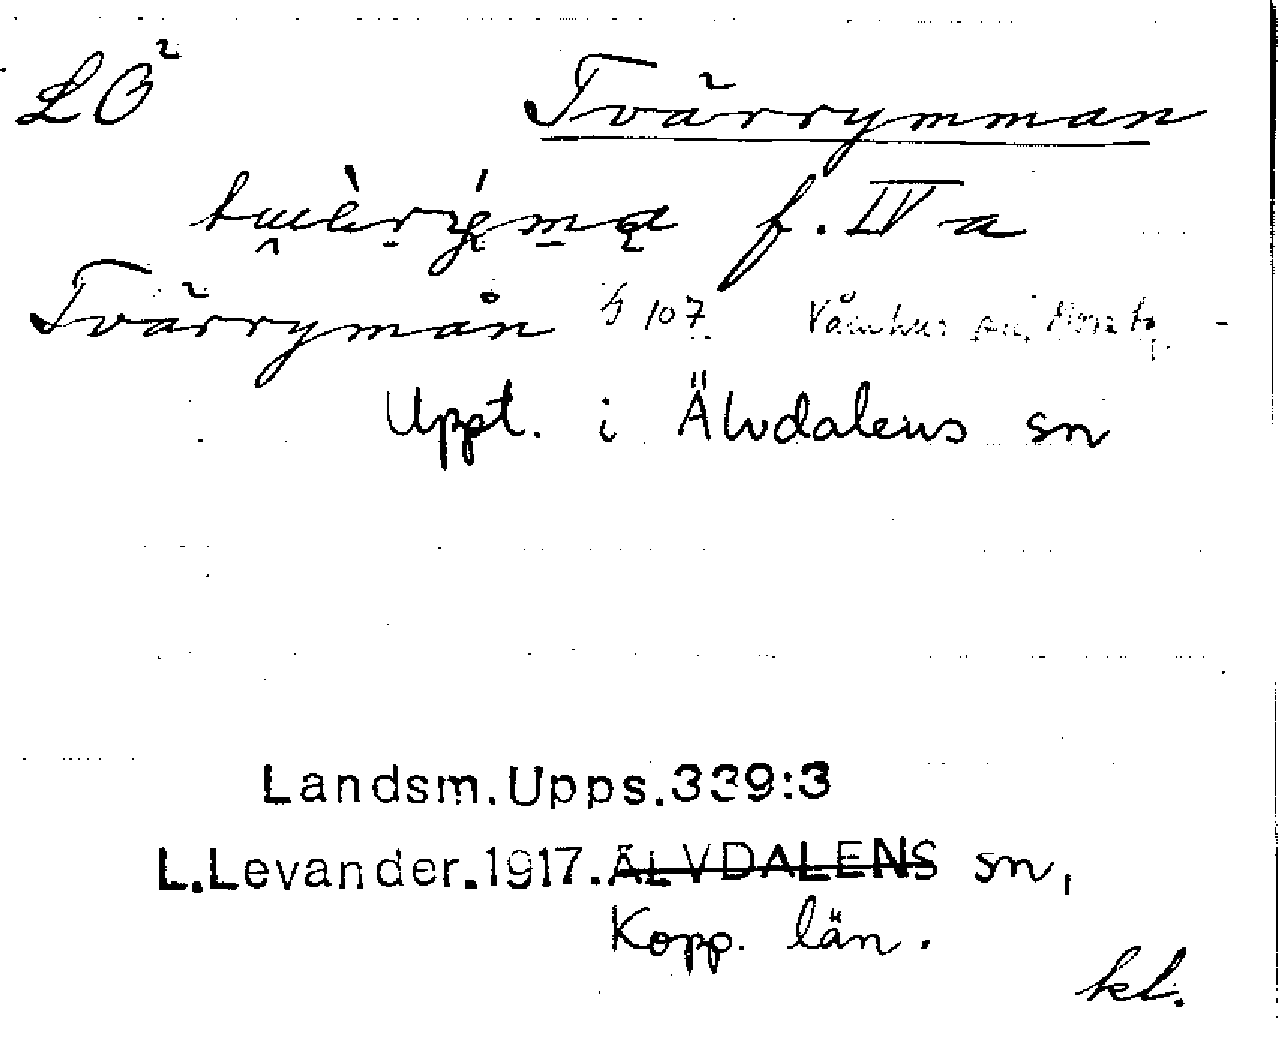 LÖ² Tvärrymman
f. IV a
Tvärrymån § 107 Våmhus sn, Mora tg
Uppt. i Älvdalens sn
Landsm.Upps.339:3
L.Levander.1917.ÄLVDALENS sn,
Kopp. län.
kl.